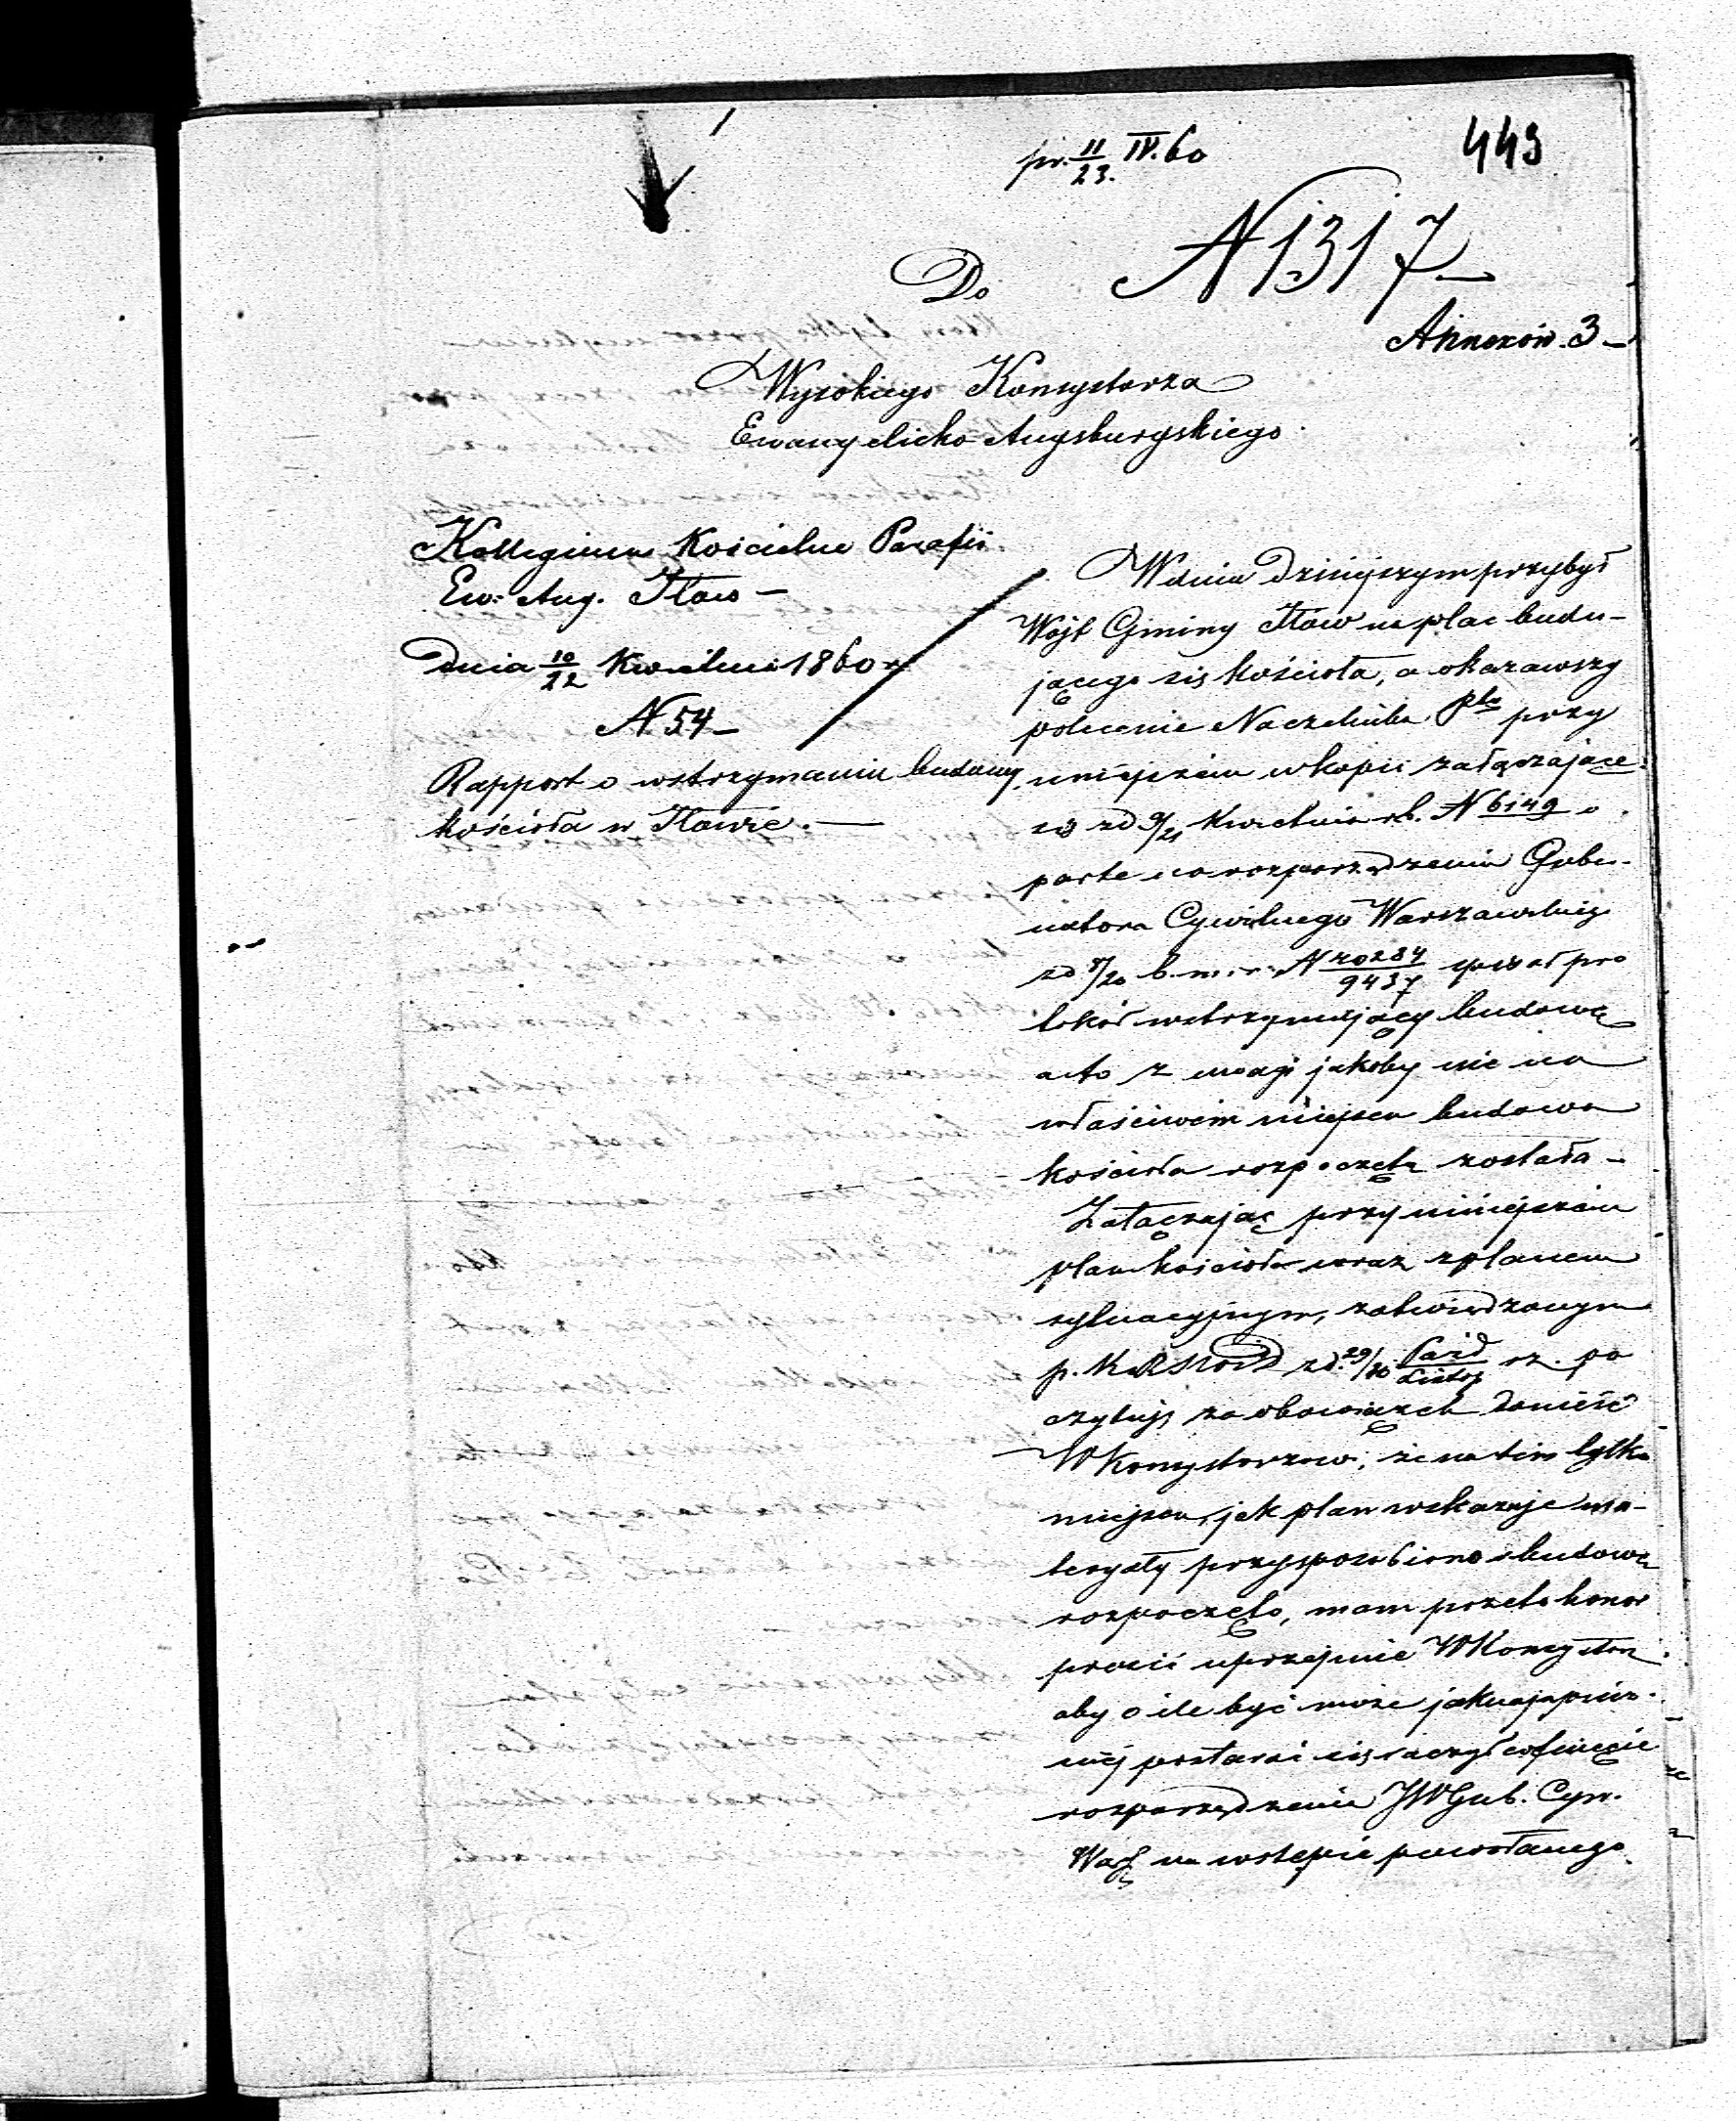 pr. 11/23. IV. 60
449
N 1317
Do
Annexów. 3 –
Wysokiego Konsystorza
Ewangelicko Augsburgskiego
Kollegium Kościelne Parafii
Ew: Aug. Iłow –
Dnia 10/22 Kwietnia 1860 r
N. 54 –
Rapport o wstrzymaniu budowy
kościoła w Iłowie. –
W dniu dzisiejszym przybył
Wójt Gminy Iłow na plac budu-
jącego się kościoła, a okazawszy
polecenie Naczelnika Ptu przy
niniejszém w kopii załączające
się zd 9/21 Kwietnia r.b. N 6149 o
parte na rozporządzeniu Guber-
natora Cywilnego Warszawskieg
zd 8/20 b. m. i r. N 20284/9437 spisał pro
tokół wstrzymujący budowę
a to z uwagi jakoby nie na
właściwém miejscu budowa
kościoła rozpoczętą została –
Załączając przy niniejszém
plan kościoła wraz z planem
sytuacyjnym, zatwierdzonym
p. K. R. zd. 29/10 Paźd/Listop r.z. po
czytuję za obowiązek donieść
W Konsystorzowi, że na tém tylko
miejscu, jak plan wskazuje ma-
teryały przysposobiono i budowę
rozpoczęto, mam przeto honor
prosić uprzejmie W Konsystorz
aby o ile być może jaknajspiesz-
niéj postarać się raczył o cofnięcie
rozporządzenia JW Gub. Cyw.
Wars na wstępie powołanego